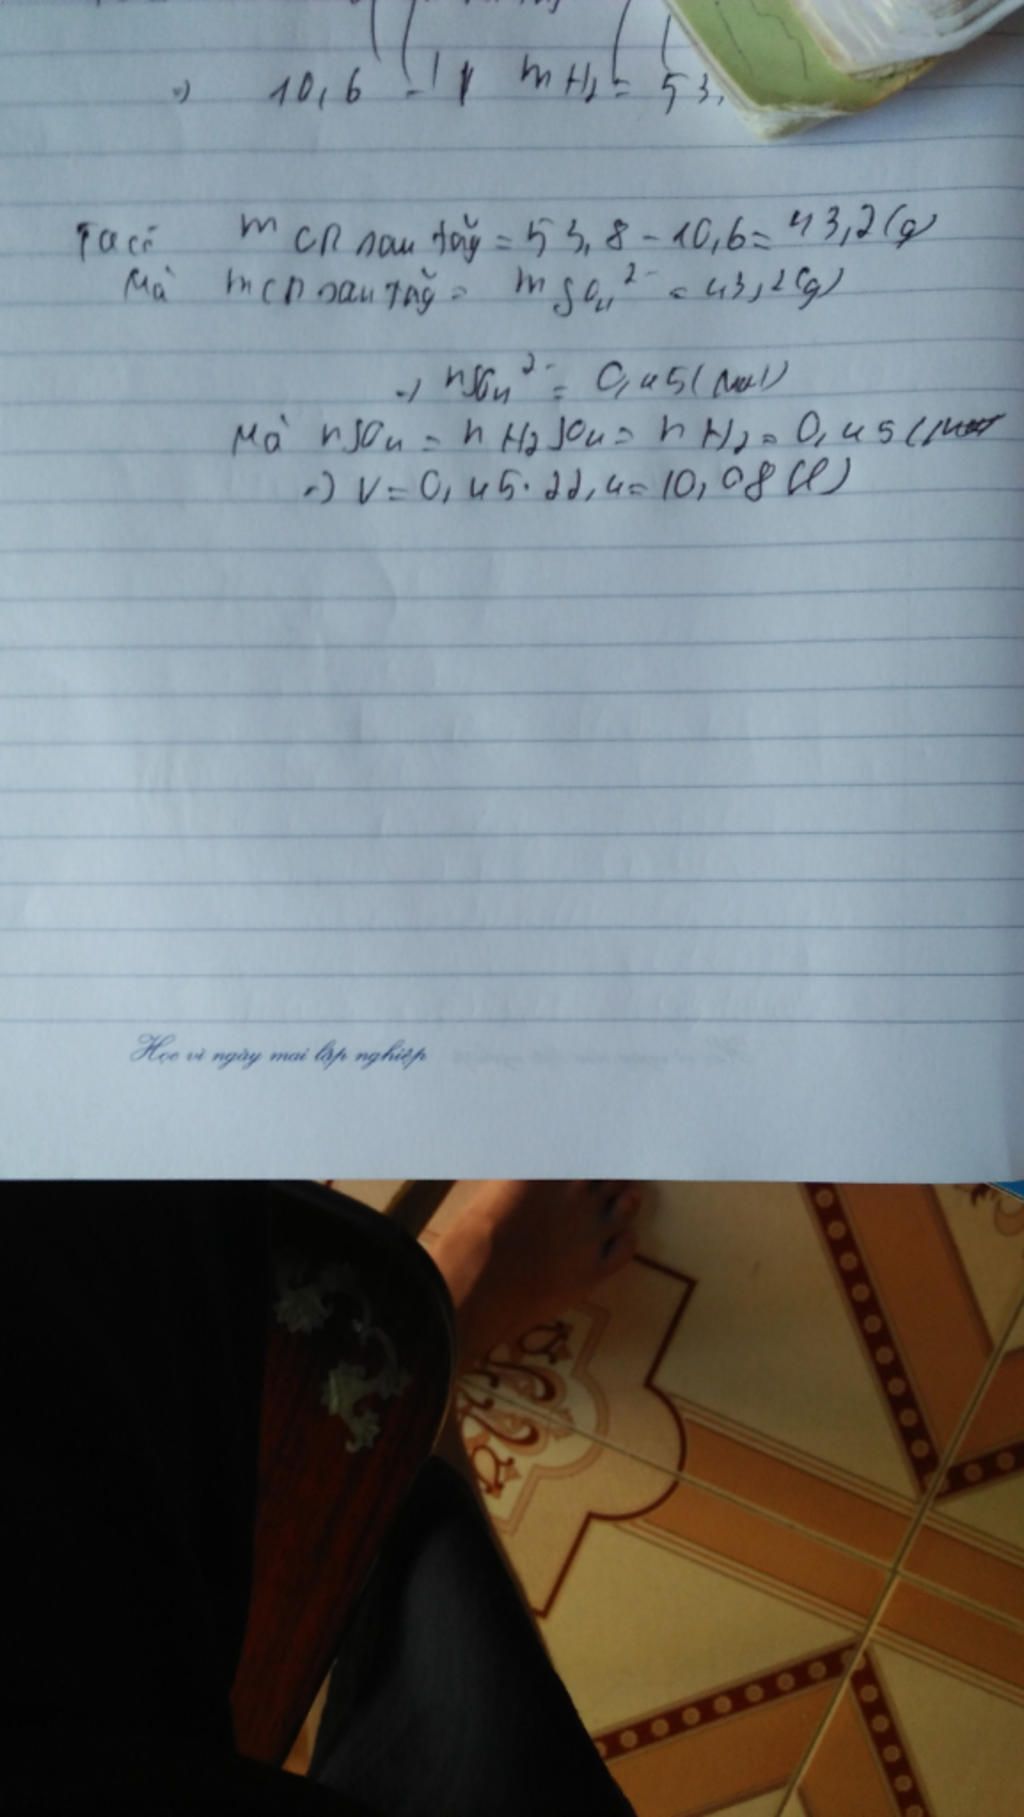 10,6 mH2 = 53,
Ta có m CR sau tăg = 53,8 - 10,6 = 43,2 (g)
Mà m CR sau tăg = m SO4 2- = 43,2 (g)
=) nSO4 2- = 0,45 (mol)
Mà nSO4 = n H2SO4 = n H2 = 0,45 (mol
=) V = 0,45.22,4 = 10,08 (l)
Học vì ngày mai lập nghiệp